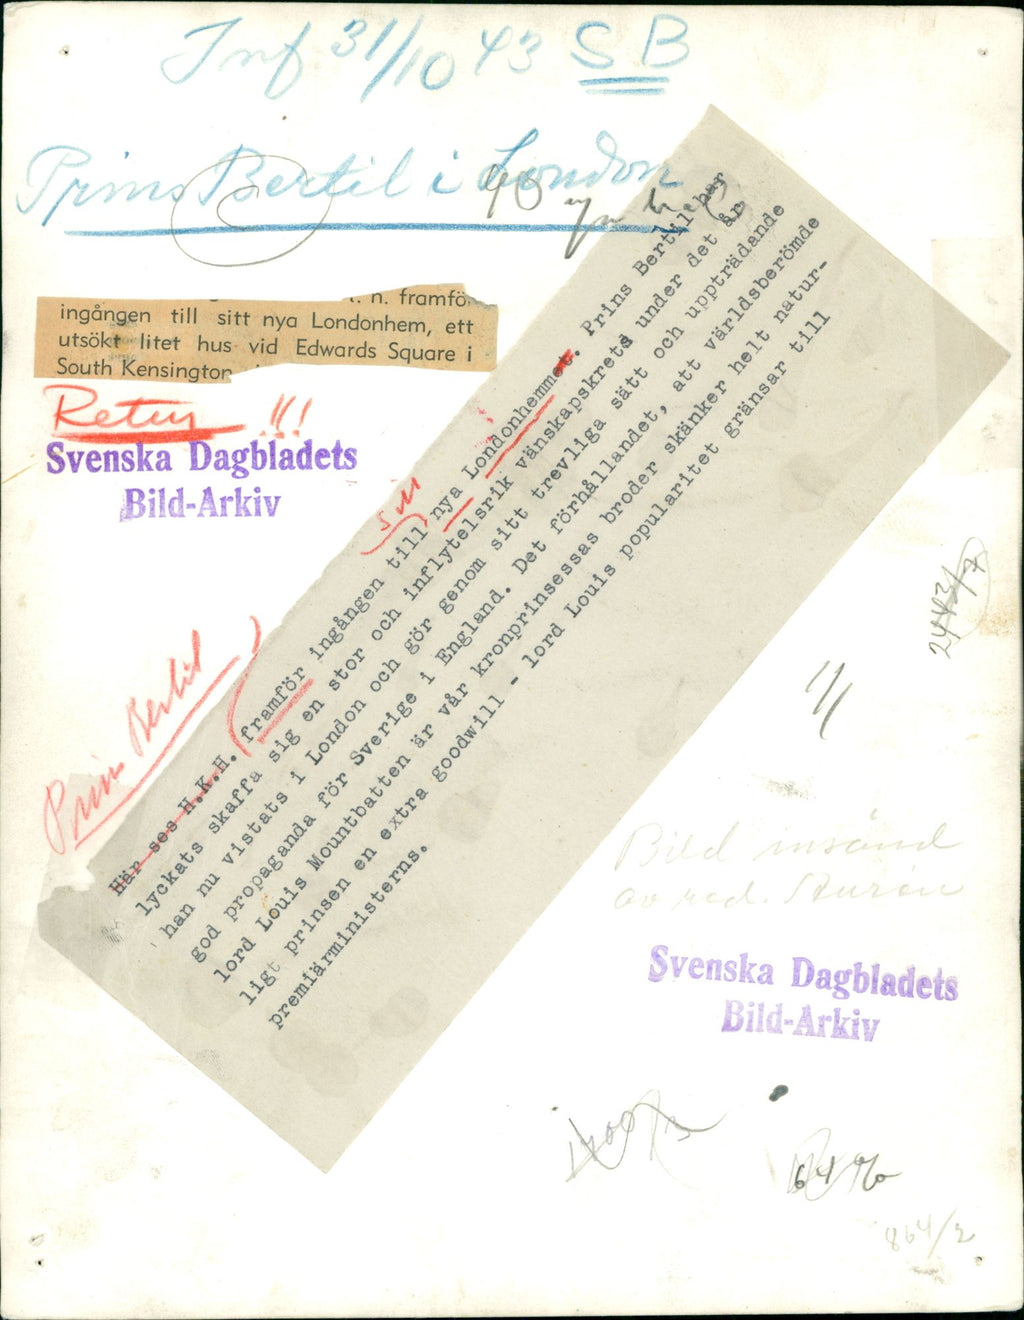 Inf 31/10 43 SB
Prins Bertil i London
t. h. framför
ingången till sitt nya Londonhem, ett
utsökt litet hus vid Edwards Square i
South Kensington
Retur !!!
Svenska Dagbladets
Bild-Arkiv
Prins Bertil
sitt
Här ses H.K.H. framför ingången till nya Londonhemmet. Prins Bertil har
lyckats skaffa sig en stor och inflytelsrik vänskapskrets under det år
han nu vistats i London och gör genom sitt trevliga sätt och uppträdande
god propaganda för Sverige i England. Det förhållandet, att världsberömde
lord Louis Mountbatten är vår kronprinsessas broder skänker helt natur-
ligt prinsen en extra goodwill - lord Louis popularitet gränsar till
premiärministerns.
2443/7
Bild insänd
av red.
Svenska Dagbladets
Bild-Arkiv
864/2